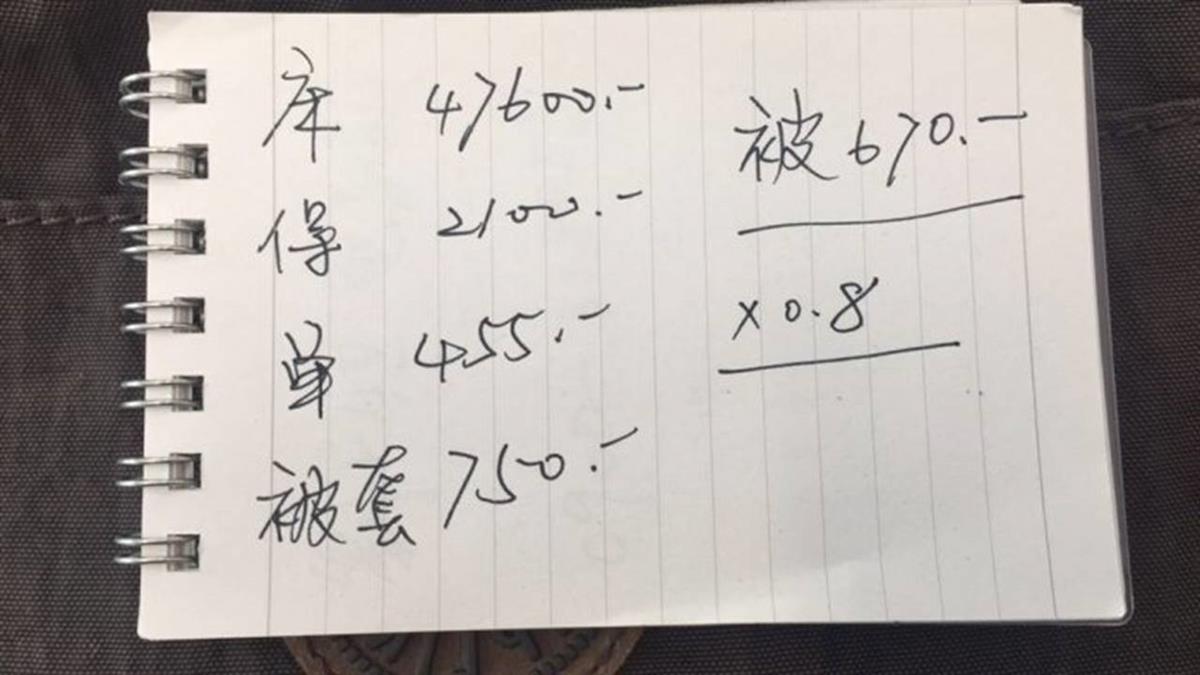 床 47600.-
得 2100.-
单 455.-
被套 750.-
被 670.-
x 0.8